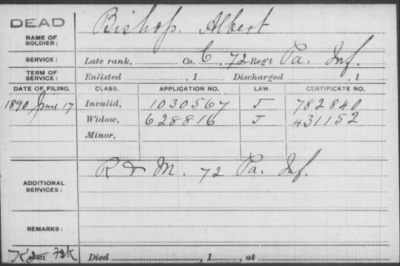 DEAD
NAME OF SOLDIER: Bishop, Albert
SERVICE: Late rank, Co. C, 72 Reg't Pa. Inf.
TERM OF SERVICE: Enlisted , 1 Discharged , 1
DATE OF FILING. CLASS. APPLICATION NO. LAW. CERTIFICATE NO.
1890, June 17 Invalid, 1030567 J 782840
Widow, 628816 J 431152
Minor,
ADDITIONAL SERVICES: 72 Pa. Inf.
REMARKS:
Died , 1 , at